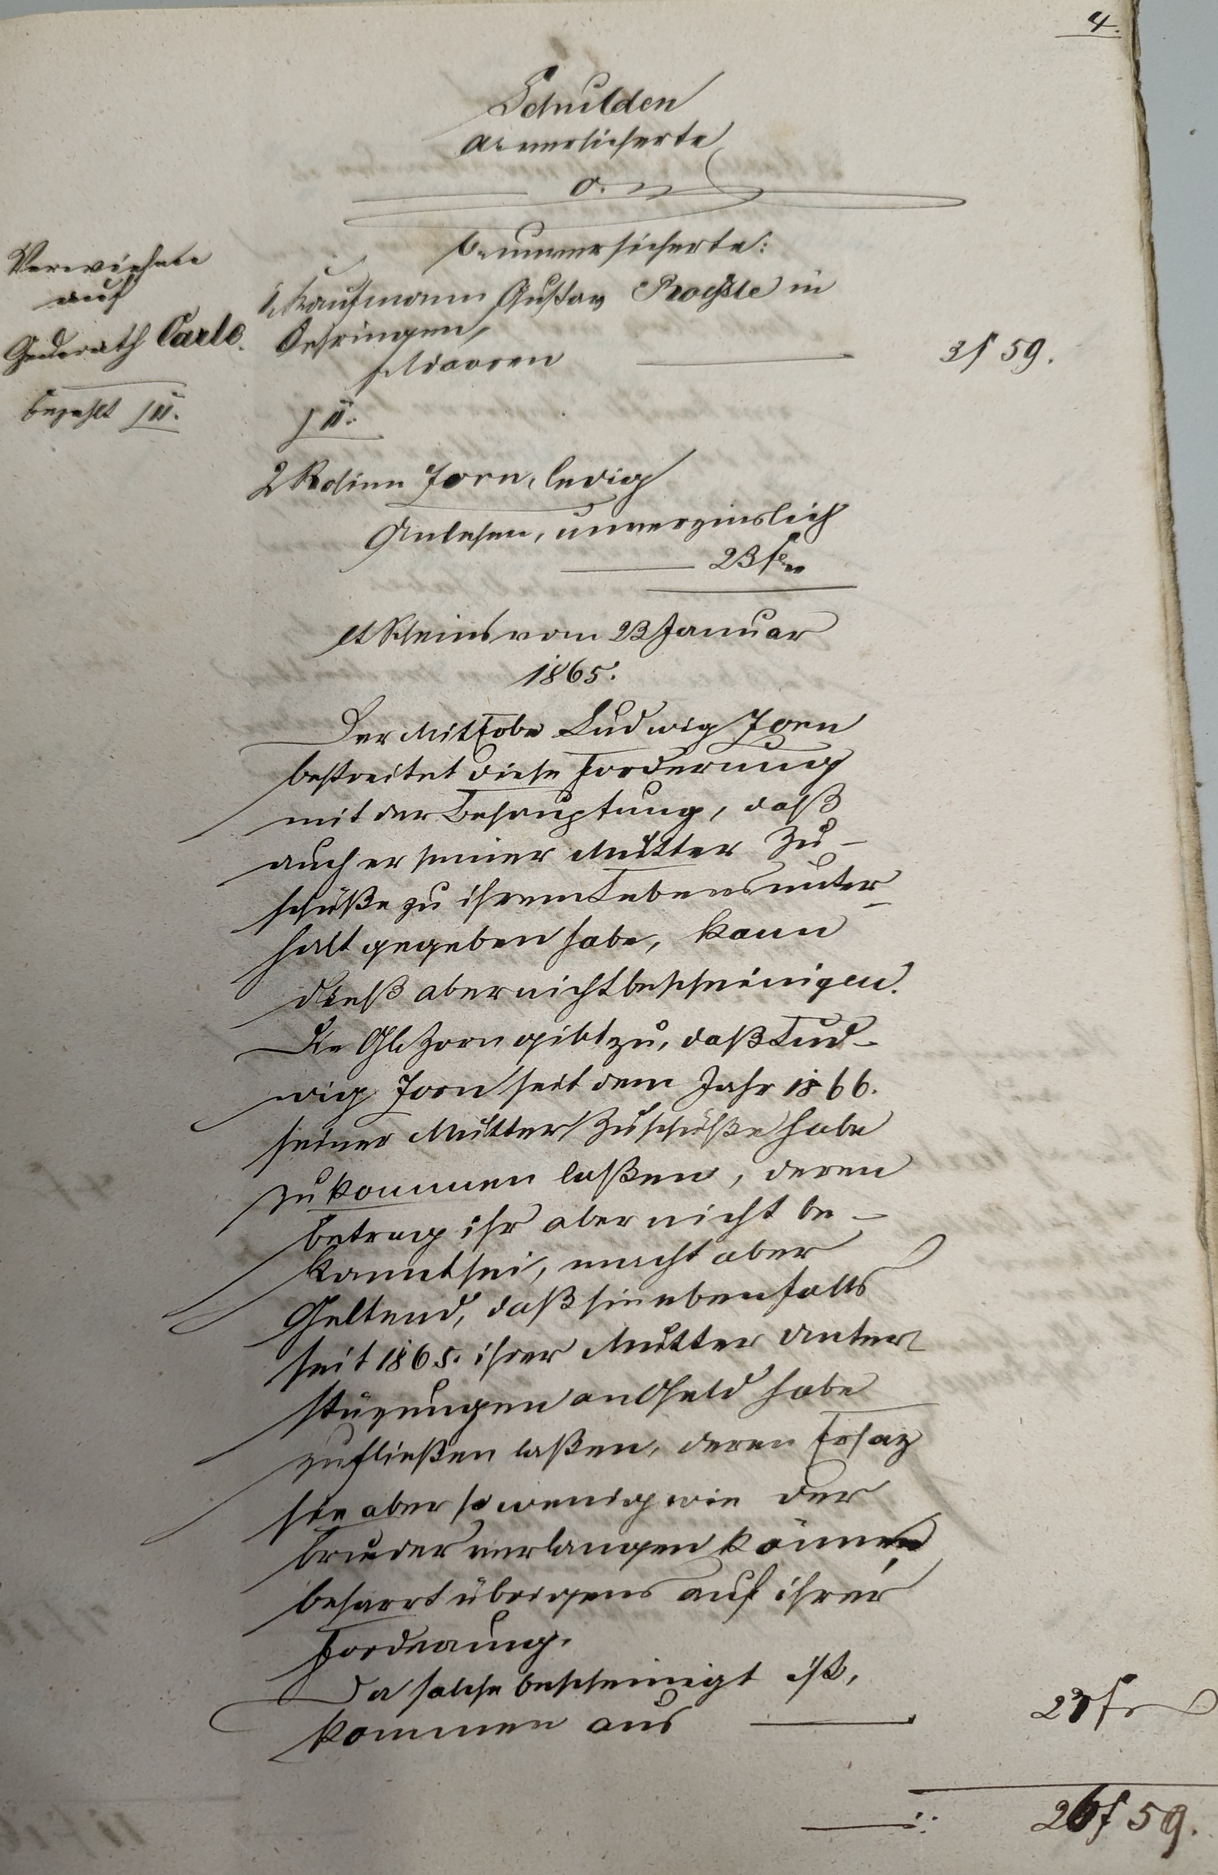 4.
Schulden
a. versicherte
0.
b. unversicherte:
Verwiesen
auf
Gemeinderath Carle.
bezahlt
1. Kaufmann Gustav in
Oehringen,
für Waaren — 3 f 59.
2 Rosine Zorn, ledig
Anlehen, unverzinslich
— 23 f —
lt. Scheins vom 23 Januar
1865.
Der Miterbe Ludwig Zorn
bestreitet diese Forderung
mit der Behauptung, daß
auch er seiner Mutter Zu-
schüße zu ihrem Lebensunter-
halt gegeben habe, kann
dieß aber nicht bescheinigen.
Die Gl. Zorn gibt zu, daß Lud-
wig Zorn seit dem Jahr 1866.
seiner Mutter Zuschüße habe
zukommen laßen, deren
Betrag ihr aber nicht be-
kannt sei, macht aber
Geltend, daß sie ebenfalls
seit 1865. ihrer Mutter Unter-
stüzungen an Geld habe
zufließen laßen, deren Ersaz
sie aber so wenig wie der
Bruder verlangen könne,
beharrt übrigens auf ihrer
Forderung.
Da solche bescheinigt ist,
kommen aus — 23 f —
26 f 59.